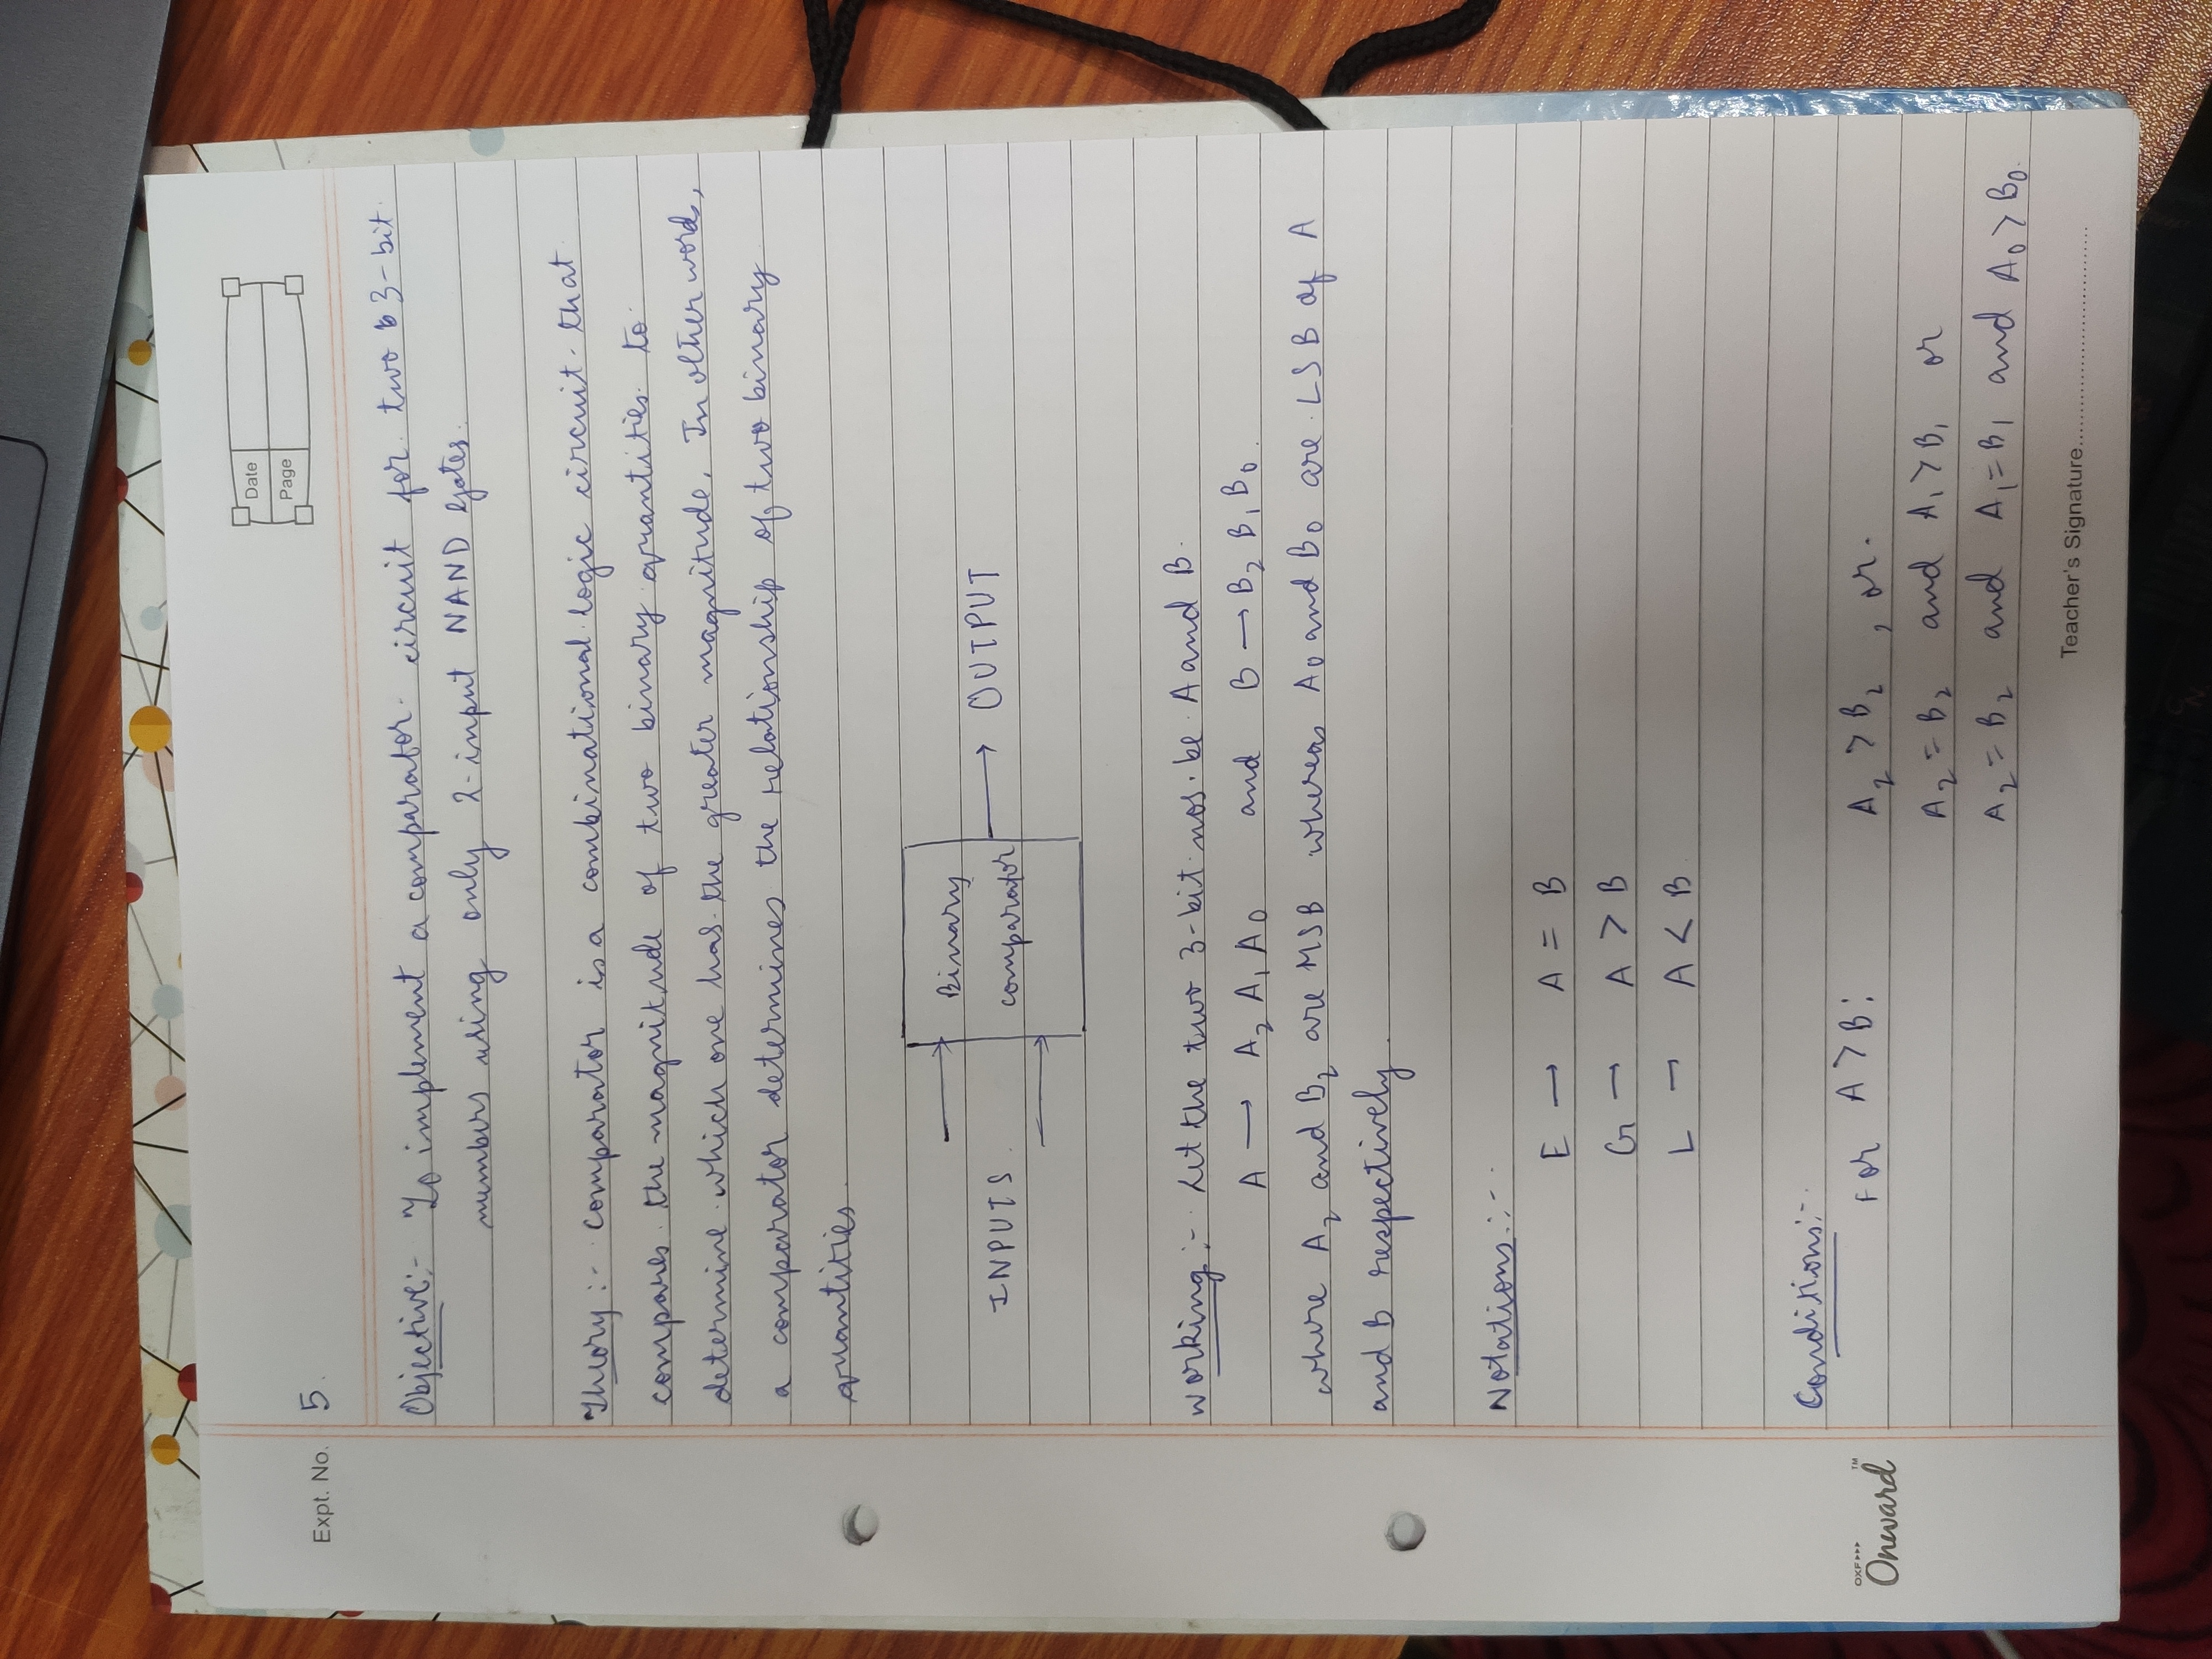 Date
Page
Expt. No. 5.
Objective:- To implement a comparator circuit for two 3-bit
numbers using only 2-input NAND Gates.
Theory:- Comparator is a combinational logic circuit that
compares the magnitude of two binary quantities to
determine which one has the greater magnitude. In other words,
a comparator determines the relationship of two binary
quantities.
Binary
INPUTS comparator → OUTPUT
Working:- Let the two 3-bit nos. be A and B.
A → A₂ A₁ A₀ and B → B₂ B₁ B₀.
where A₂ and B₂ are MSB whereas A₀ and B₀ are LSB of A
and B respectively.
Notations:-
E → A = B
G → A > B
L → A < B
Conditions:-
For A > B: A₂ > B₂, or
A₂ = B₂ and A₁ > B₁ or
A₂ = B₂ and A₁ = B₁ and A₀ > B₀.
OXF▸▸▸ ™
Onward
Teacher's Signature....................................